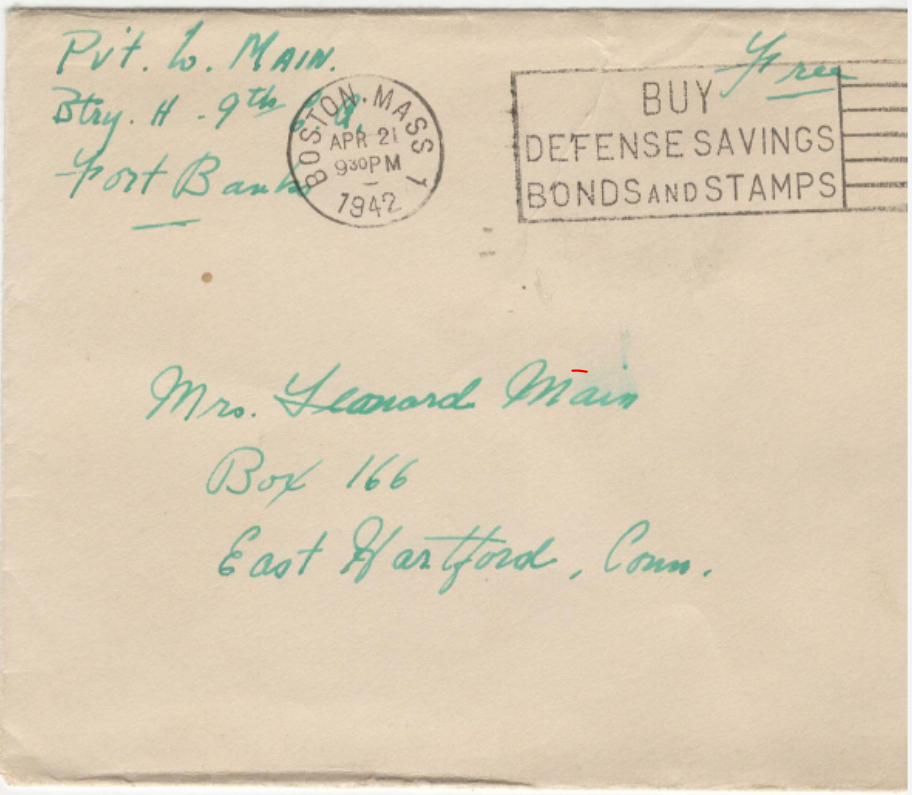 Pvt. L. MAIN.
Btry. H. 9th C.A.
Fort Banks
BOSTON, MASS 1
APR 21
930PM
1942
Free
BUY
DEFENSE SAVINGS
BONDS AND STAMPS
Mrs. Leonard Main
Box 166
East Hartford, Conn.